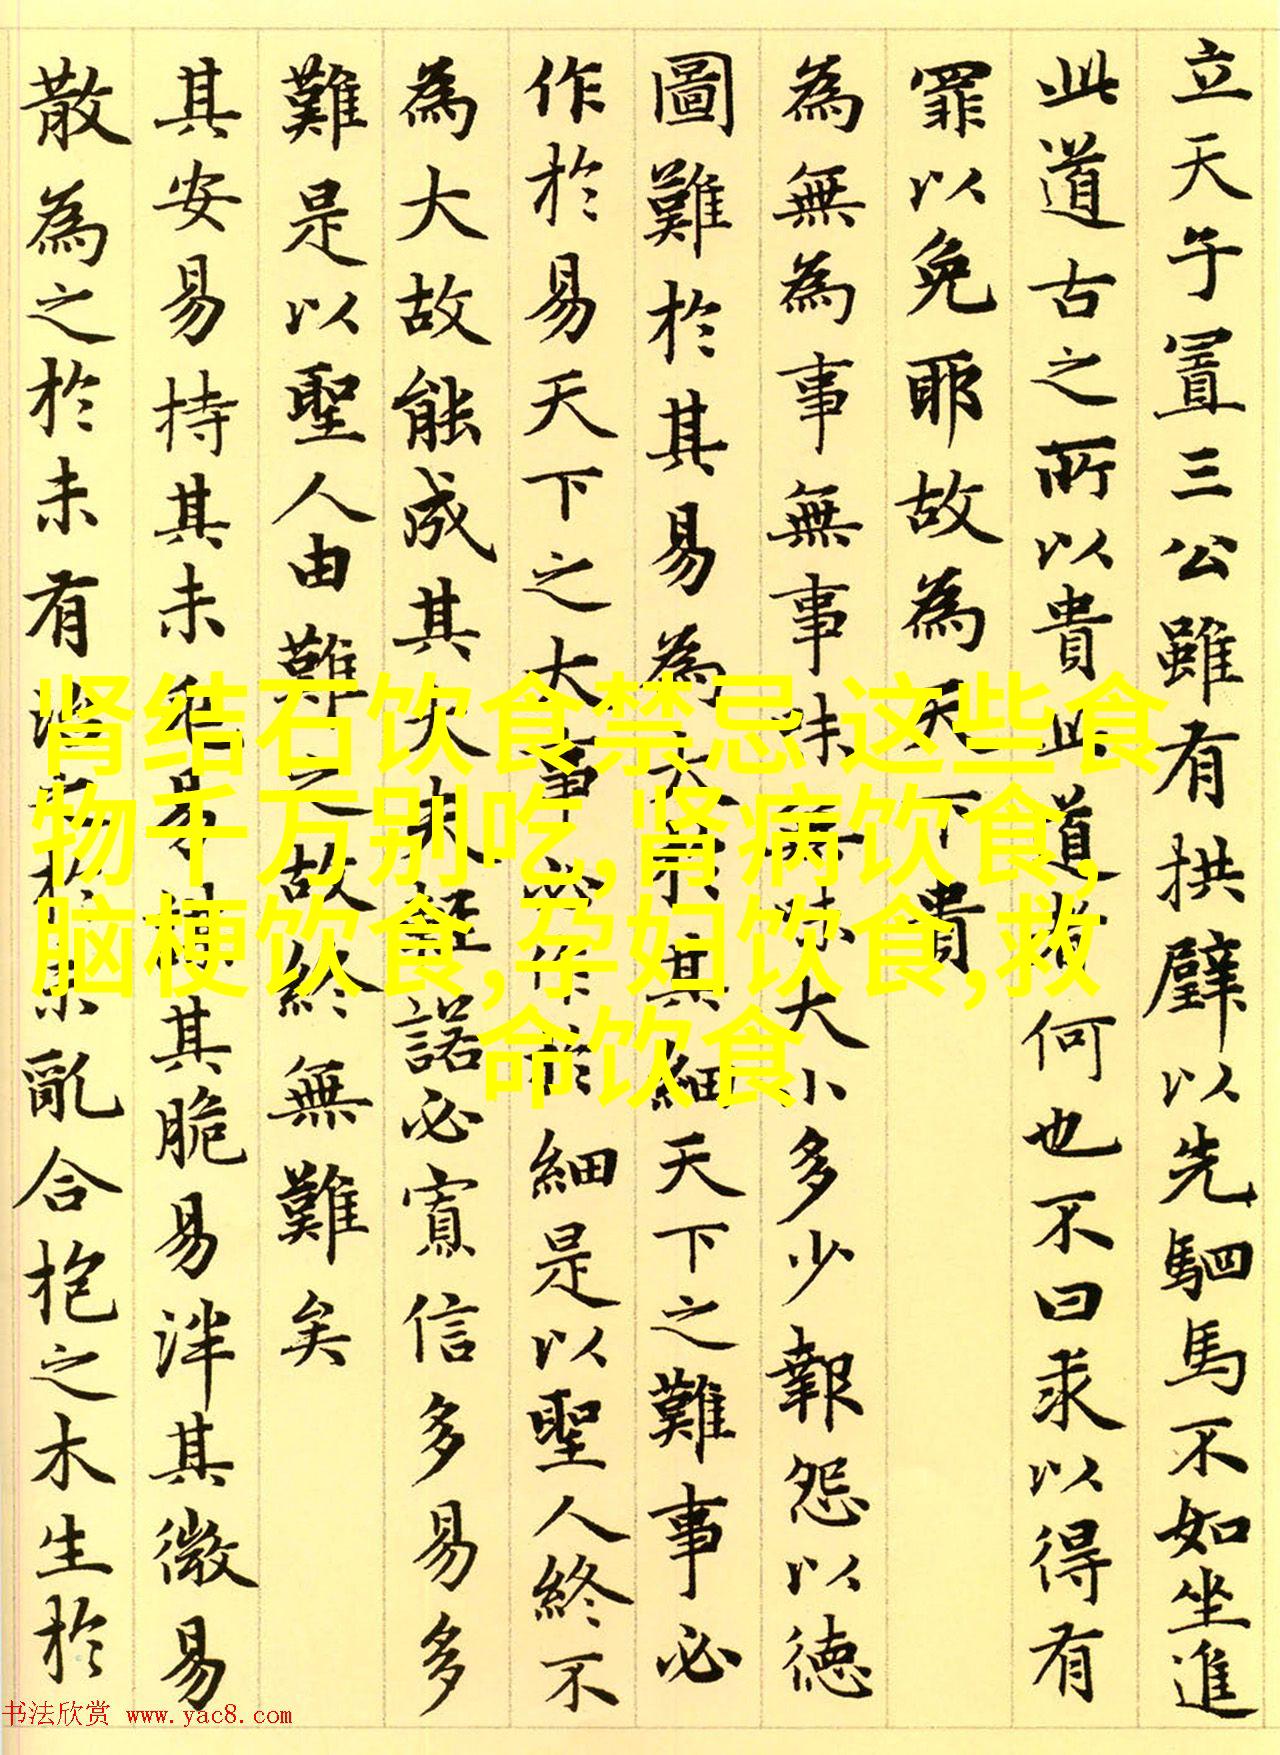 立天子置三公雖有拱璧以先駟馬不如坐進
此道古之所以貴此道者何也不曰求以得有
罪以免耶故為天下貴
為無為事無事味無味大小多少報怨以德
圖難於其易為大於其細天下之難事必
作於易天下之大事必作於細是以聖人終不
為大故能成其大夫輕諾必寡信多易多
難是以聖人由難之故終無難矣
其安易持其未兆易謀其脆易泮其微易
散為之於未有治之於未亂合抱之木生於
肾结石饮食禁忌 这些食
物千万别吃,肾病饮食,
脑梗饮食,孕妇饮食,救
命饮食
书法欣赏 www.yac8.com